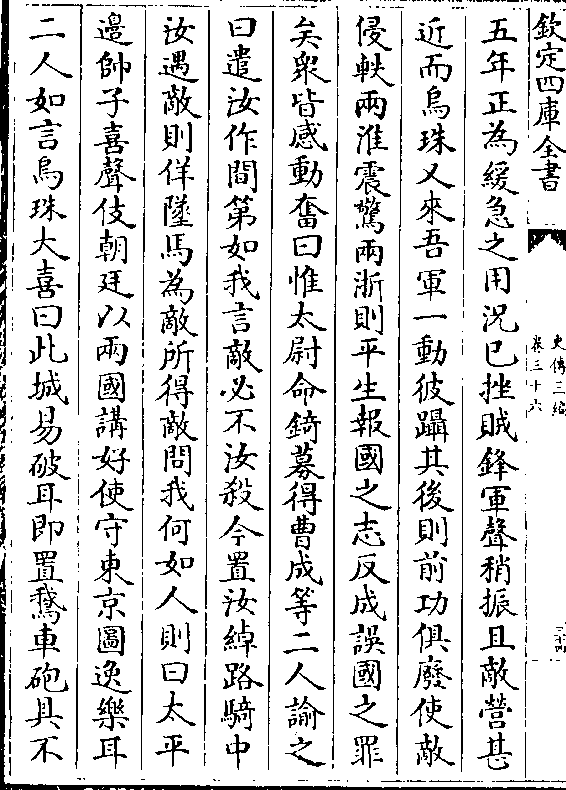 欽定四庫全書
史傳三編
卷三十六
三十四
五年正為緩急之用況已挫賊鋒軍聲稍振且敵營甚
近而烏珠又來吾軍一動彼躡其後則前功俱廢使敵
侵軼兩淮震驚兩浙則平生報國之志反成誤國之罪
矣衆皆感動奮曰惟太尉命錡募得曹成等二人諭之
曰遣汝作間第如我言敵必不汝殺今置汝綽路騎中
汝遇敵則佯墜馬為敵所得敵問我何如人則曰太平
邊帥子喜聲伎朝廷以兩國講好使守東京圖逸樂耳
二人如言烏珠大喜曰此城易破耳即置鵞車砲具不